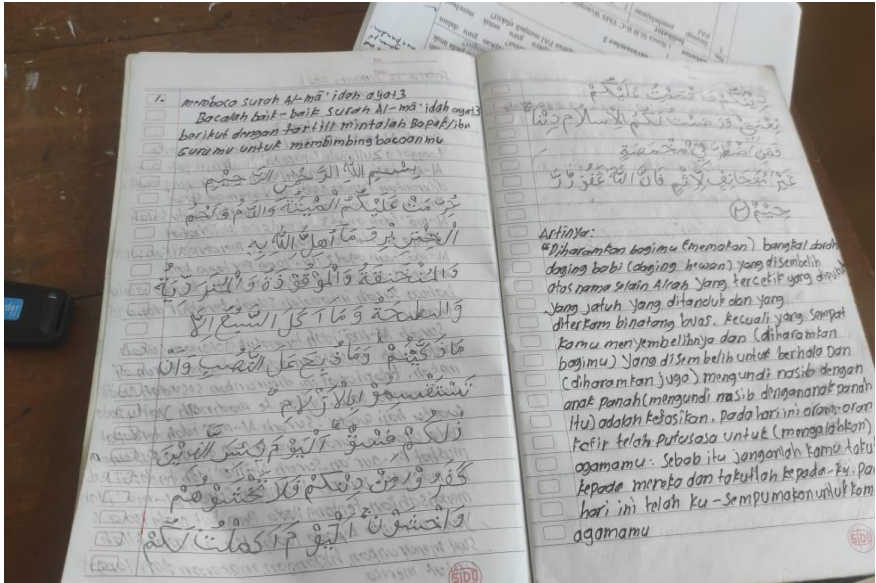 1. membaca surah Al-mā'idah ayat 3
Bacalah baik-baik surah Al-mā'idah ayat 3
berikut dengan tartil! mintalah Bapak/ibu
Gurumu untuk membimbing bacaanmu
بِسْمِ اللهِ الرَّحْمٰنِ الرَّحِيْمِ
حُرِّمَتْ عَلَيْكُمُ الْمَيْتَةُ وَالدَّمُ وَلَحْمُ
الْخِنْزِيْرِ وَمَآ اُهِلَّ اللهِ بِهِ
وَالْمُنْخَنِقَةُ وَالْمَوْقُوْذَةُ وَالْمُتَرَدِّيَةُ
وَالنَّطِيْحَةُ وَمَآ اَكَلَ السَّبُعُ اِلَّا
مَاذَكَّيْتُمْ وَمَاذُبِحَ عَلَى النُّصُبِ وَاَنْ
تَسْتَقْسِمُوْا بِالْاَزْلَامِ
ذٰلِكُمْ فِسْقٌ اَلْيَوْمَ يَئِسَ الَّذِيْنَ
كَفَرُوْا مِنْ دِيْنِكُمْ فَلَا تَخْشَوْهُمْ
وَاخْشَوْنِ اَلْيَوْمَ اَكْمَلْتُ لَكُمْ
دِيْنَكُمْ وَاَتْمَمْتُ عَلَيْكُمْ
نِعْمَتِيْ وَرَضِيْتُ لَكُمُ الْاِسْلَامَ دِيْنًا
فَمَنِ اضْطُرَّ فِيْ مَخْمَصَةٍ
غَيْرَ مُتَجَانِفٍ لِاِثْمٍ فَاِنَّ اللهَ غَفُوْرٌ
رَّحِيْمٌ ٣
Artinya:
"Diharamkan bagimu (memakan) bangkai darah
daging babi (daging hewan) yang disembelih
atas nama selain Allah yang tercekik yang dipukul
yang jatuh yang ditanduk dan yang
diterkam binatang buas. kecuali yang sempat
kamu menyembelihnya dan (diharamkan
bagimu) Yang disembelih untuk berhala Dan
(diharamkan juga) mengundi nasib dengan
anak panah (mengundi nasib dengan anak panah
itu) adalah kefasikan. pada hari ini orang-oran
kafir telah putusasa untuk (mengalahkan)
agamamu. Sebab itu janganlah kamu taku
kepada mereka dan takutlah kepada-ku. pa
hari ini telah ku-sempurnakan untuk kam
agamamu
SIDU
SIDU